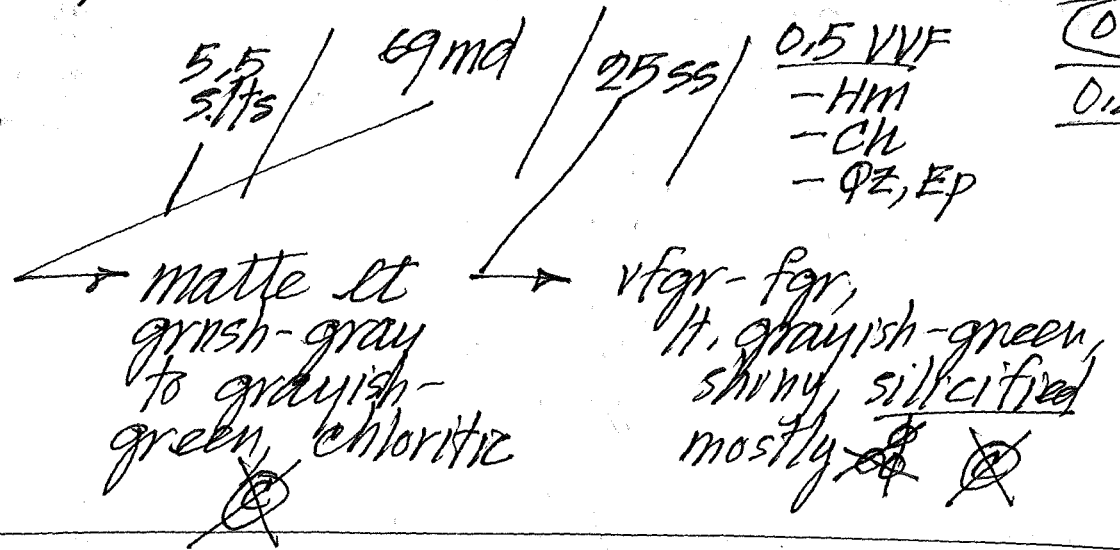 5.5 silts / 69 md / 25 ss / 0.5 VVF
– Hm
– Ch
– Qz, Ep
matte lt
grnsh-gray
to grayish-
green, chloritic
C
vfgr - fgr,
lt. grayish-green,
shiny, silicified
mostly
C
(0
0.